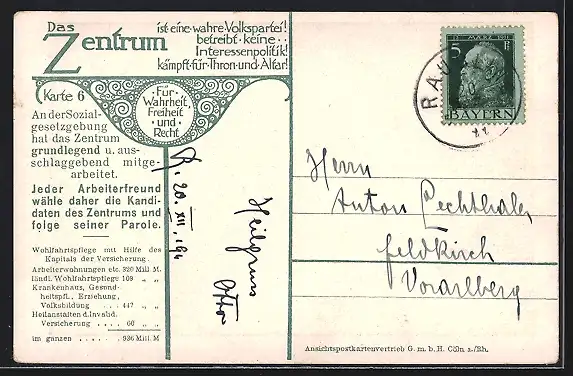 Das
Zentrum
ist eine wahre Volkspartei!
betreibt keine
Interessenpolitik!
kämpft für Thron und Altar!
Karte 6
Für
Wahrheit,
Freiheit
und
Recht
An der Sozial-
gesetzgebung
hat das Zentrum
grundlegend u. aus-
schlaggebend mitge-
arbeitet.
Jeder Arbeiterfreund
wähle daher die Kandi-
daten des Zentrums und
folge seiner Parole.
Wohlfahrtspflege mit Hilfe des
Kapitals der Versicherung.
Arbeiterwohnungen etc. 320 Mill. M.
ländl. Wohlfahrtspflege 109 „ „
Krankenhaus, Gesund-
heitspfl., Erziehung,
Volksbildung . . . . 447 „ „
Heilanstalten d. Invalid.
Versicherung . . . . . 60 „ „
im ganzen . . . . . . 936 Mill. M
20. XII.
Heilgruss
Otto
12. MÄRZ 1911
5 Pf
BAYERN
RAU
Herrn
Anton Pechthaler
Feldkirch
Vorarlberg
Ansichtspostkartenvertrieb G. m. b. H. Cöln a./Rh.